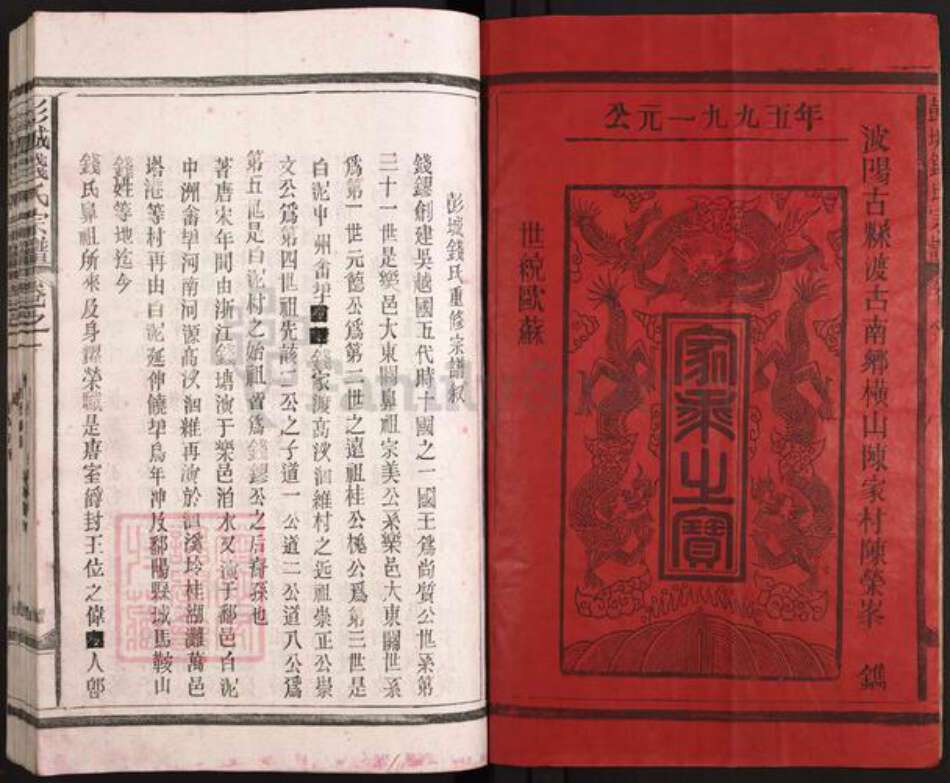 公元一九九五年
波陽古縣渡古南鄉橫山陳家村陳榮峯 鐫
家乘之寶
世貌歐蘇
彭城錢氏宗譜
彭城錢氏重修宗譜叙
錢鏐創建吳越國五代時十國之一國王爲尚質公世系第
三十一世是樂邑大東關鼻祖宗美公系樂邑大東關世系
爲第一世元德公爲第二世之遠祖桂公槐公爲第三世是
白泥中州畲坪錢家渡高汊洄維村之近祖崇正公崇
文公爲第四世祖先該二公之子道一公道二公道八公爲
第五世是白泥村之始祖首爲錢鏐公之后裔孫也
著唐宋年間由浙江錢塘演于樂邑泊水又演于鄱邑白泥
中洲畲坪河南河源高汊洄維再演於洄溪坽桂湖灘萬邑
塔港等村再由白泥延伸饒坪烏年冲及鄱陽縣城馬鞍山
錢姓等地迄今
錢氏鼻祖所來及身躍榮職是唐室爵封王位之偉人郎
彭城錢氏宗譜 卷之一